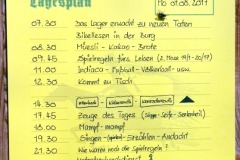 Tagesplan
Mo 07.08.2017
07.30 Das Lager erwacht zu neuen Taten
Bibellesen in der Burg
08.30 Müesli - Kakao - Brote
09.45 Spielregeln fürs Leben (2. Mose 19/1-20/17)
11.00 Indiaca - Fußball - Völkerball usw.
12.30 Kommt zu Tisch
14.30
17.45 Zeuge des Tages
18.00 Mampf - mampf
19.30 Singen - Erzählen - Andacht
21.30 Wie waren noch die Spielregeln?